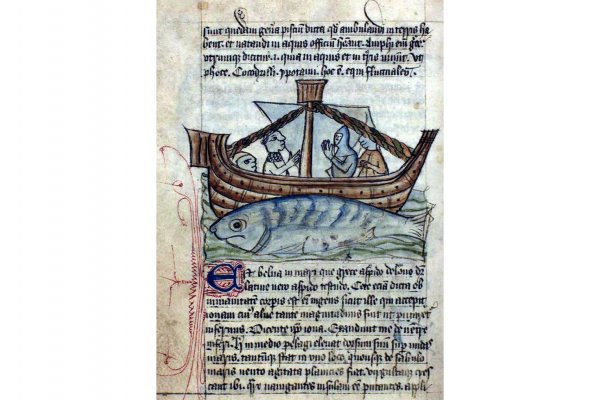 sunt quedam gen'a pisciū dicta qd ambulandi in terris ha
bent. et natandi in aquis officiū heant. Amphi em̄ gre
utrumque dicitur .i. quia in aquis et in tris uiuunt. Vt
phoce. Cocodrilli. ypotami. hoc ē. equi fluctuales.
Est belua in mari que grece aspido delone dr
latine uero aspido testudo. Cete eciā dicta ob
inmanitatē corpis est em̄ ingens sicut ille qui accepit
ionam cui' alue tante magnitudinis fuit ut putaret
infernus. Dicente ipo iona. Exaudiuit me de uentre
inferi. in medio pelagi eleuat dorsum suū sup undas
maris. tantūque stat in uno loco. quousque de sabulo
maris uento agitata planicies fiat. uirgultaque cres
cant ibi. nauigantes insulam eē putantes. appli